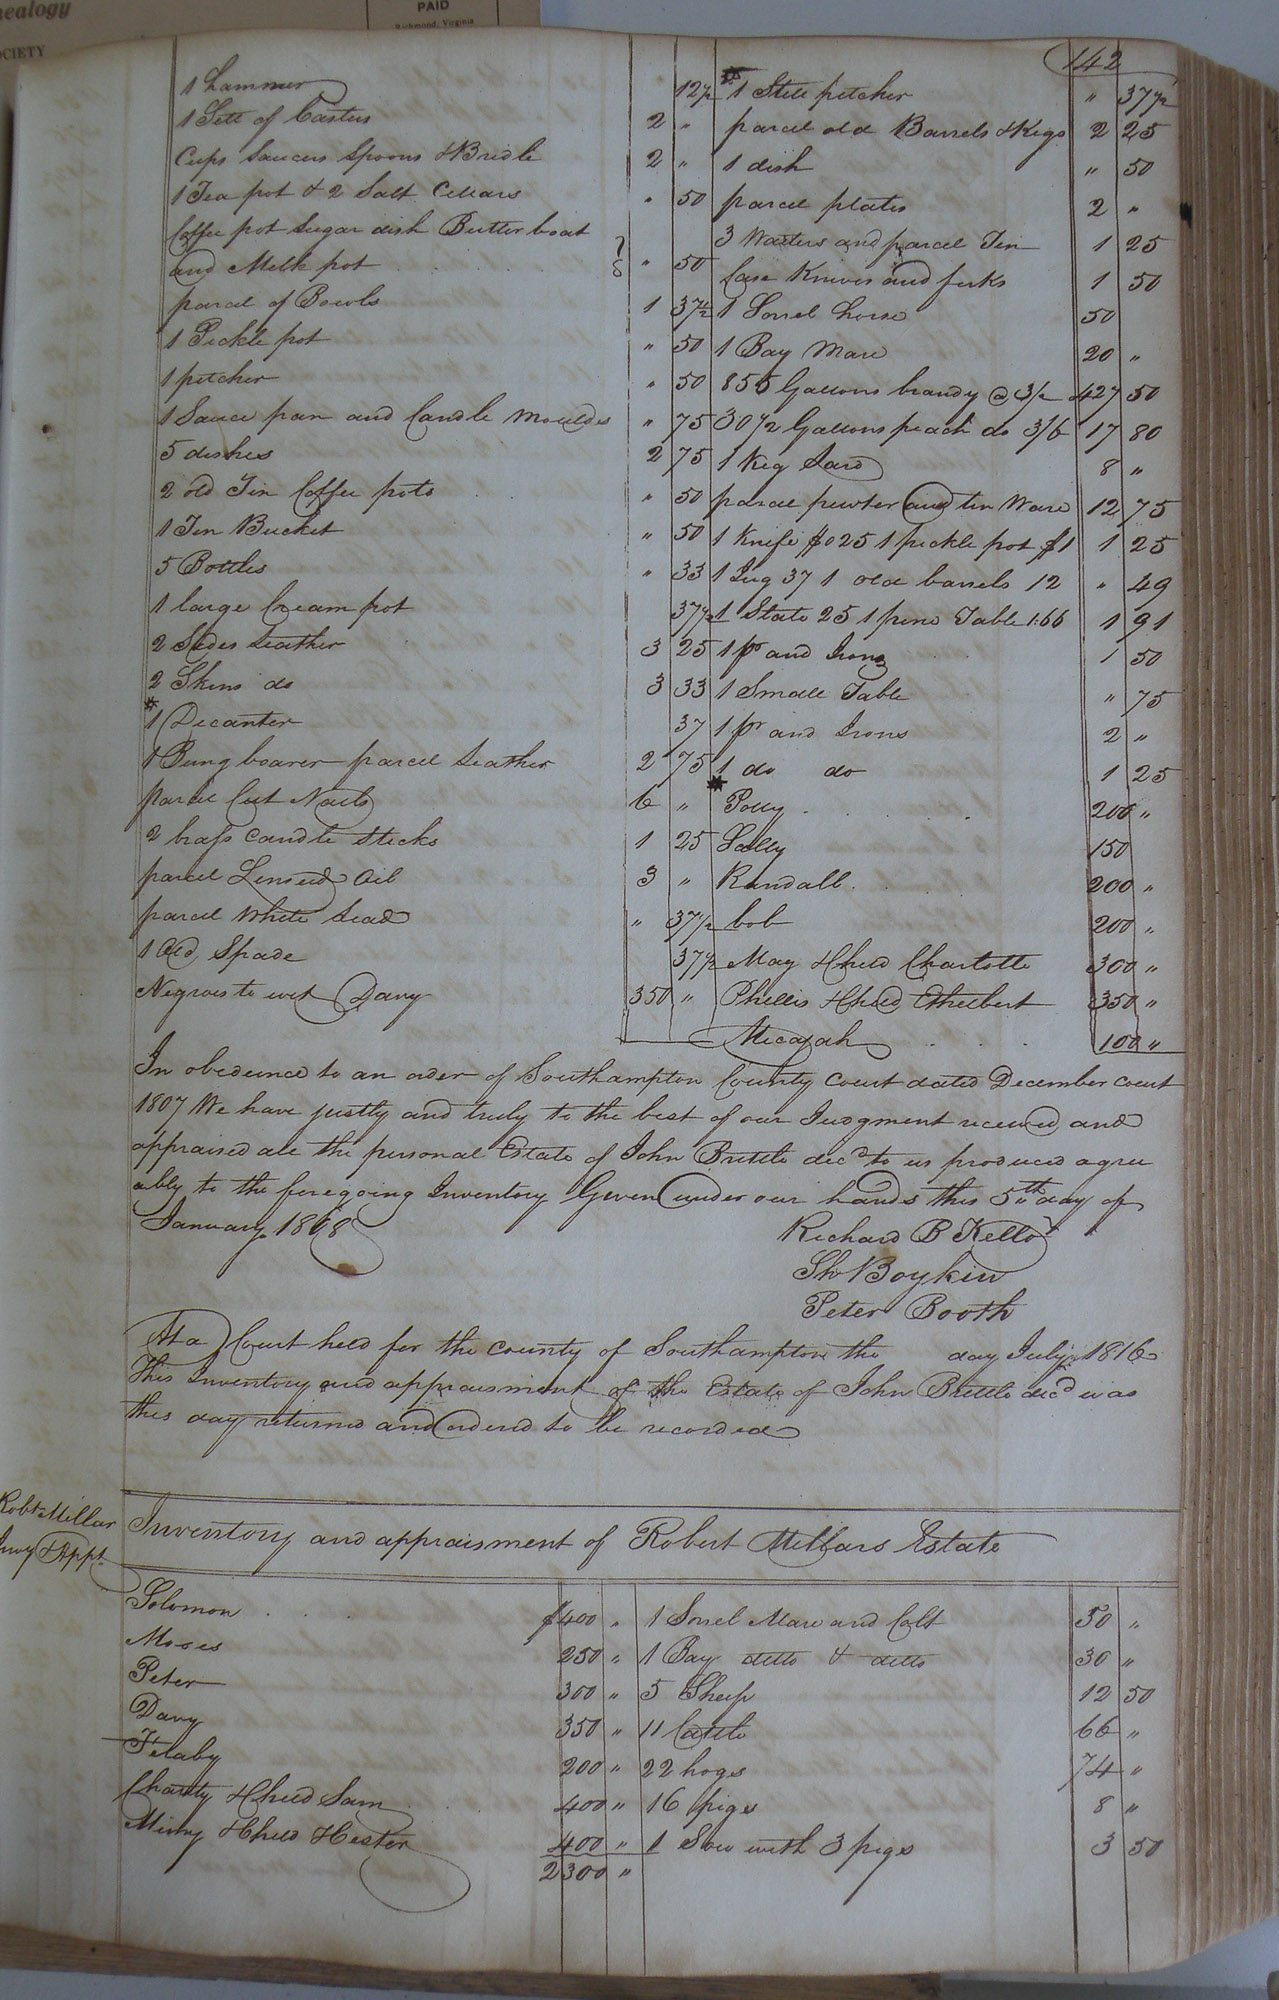 nealogy
OCIETY
PAID
Richmond, Virginia
142
1 Hammer 12½
1 Sett of Casters 2 "
Cups Saucers Spoons & Bridle 2 "
1 Tea pot & 2 Salt Cellars " 50
Coffee pot Sugar dish Butter boat
and Melk pot " 50
parcel of Bowls 1 37½
1 Pickle pot " 50
1 pitcher " 50
1 Sauce pan and Candle Moulds " 75
5 dishes 2 75
2 old Tin Coffee pots " 50
1 Tin Bucket " 50
5 Bottles " 33
1 large Cream pot 37½
2 Sides Leather 3 25
2 Skins do 3 33
* 1 Decanter 37
1 Bung boarer parcel Leather 2 75
parcel Cut Nails 6 "
2 brass Candle Sticks 1 25
parcel Linseed Oil 3 "
parcel White Lead " 37½
1 Old Spade 37½
Negroes to wit Davy 350 "
* 1 Still pitcher " 37½
parcel old Barrels & Kegs 2 25
1 dish " 50
parcel plates 2 "
3 Waiters and parcel Tin 1 25
Case Knives and forks 1 50
1 Sorrel horse 50
1 Bay Mare 20 "
855 Gallons brandy @ 3/ 427 50
30½ Gallons peach do 3/6 17 80
1 Keg Lard 8 "
parcel pewter and tin Ware 12 75
1 Knife $0 25 1 pickle pot $1 1 25
1 Jug 37 1 old barrels 12 " 49
1 Slate 25 1 pine Table 1.66 1 91
1 pr and Irons 1 50
1 Small Table " 75
1 pr and Irons 2 "
1 do do 1 25
* Polly 200 "
Sally 150
Randall 200 "
bob 200 "
May & Child Charlotte 300 "
Phillis & Child Ethelbert 350 "
Micajah 100 "
In obedience to an order of Southampton County Court dated December court
1807 We have justly and truly to the best of our Judgment received and
appraised all the personal Estate of John Brittle decd to us produced agree
ably to the foregoing Inventory Given under our hands this 5th day of
January 1808
Richard B Kello
Boykin
Peter Booth
At a Court held for the county of Southampton the day July 1816
This Inventory and appraisment of the Estate of John Brittle decd was
this day returned and ordered to be recorded
Robt Millar
Invy & Appt
Inventory and appraisment of Robert Millars Estate
Solomon $400 "
Moses 250 "
Peter 300 "
Davy 350 "
200 "
Charity & Child Sam 400 "
Miny & Child Hester 400 "
2300 "
1 Sorrel Mare and Colt 50 "
1 Bay ditto & ditto 30 "
5 Sheep 12 50
11 Cattle 66 "
22 hogs 74 "
16 pigs 8 "
1 Sow with 3 pigs 3 50